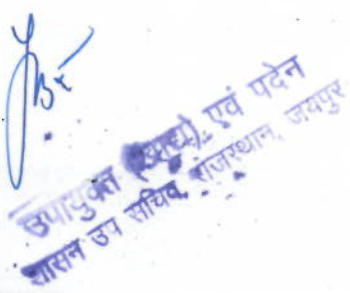 उपायुक्त (खाद्य) एवं पदेन
शासन उप सचिव, राजस्थान, जयपुर